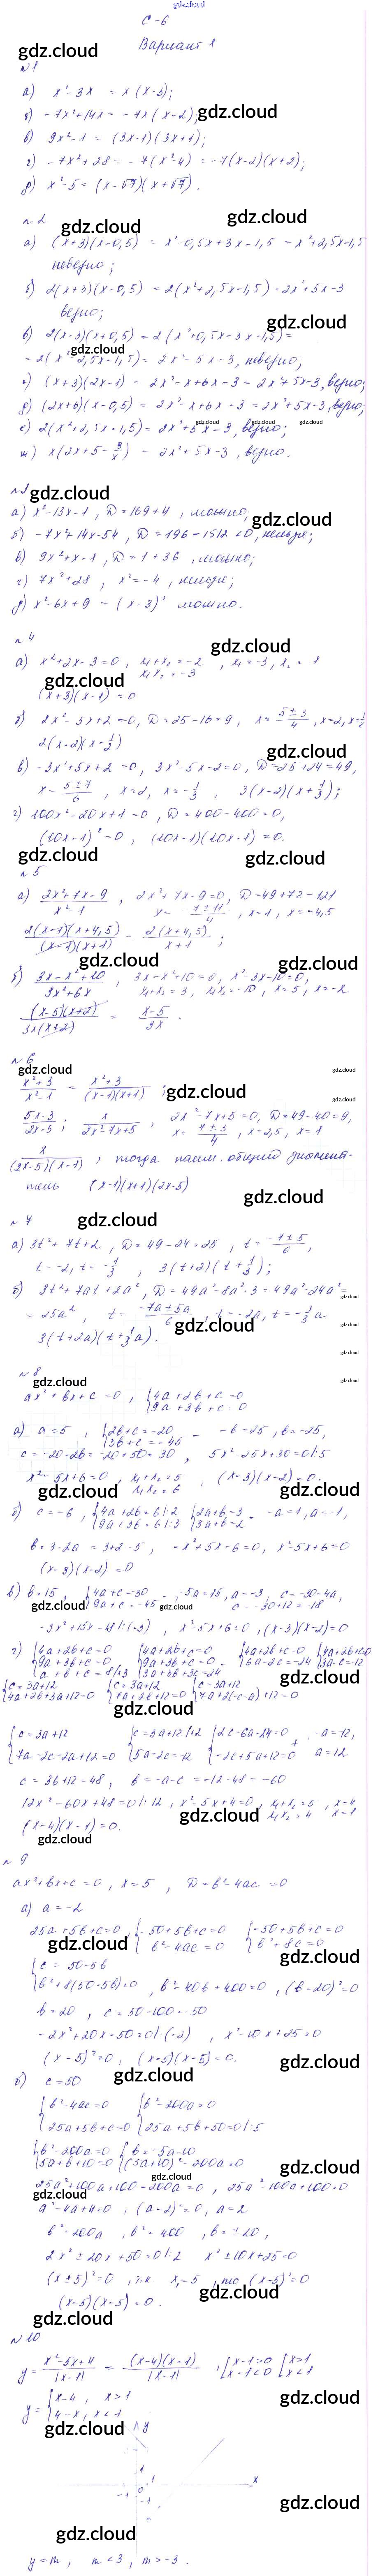 gdz.cloud
С-6
Вариант 1
gdz.cloud
№1
а) x² - 3x = x(x-3);
б) -7x²+14x = -7x(x-2); gdz.cloud
в) 9x²-1 = (3x-1)(3x+1);
г) -7x²+28 = -7(x²-4) = -7(x-2)(x+2);
д) x²-5 = (x-√7)(x+√7).
№2
gdz.cloud gdz.cloud
а) (x+3)(x-0,5) = x²-0,5x+3x-1,5 = x²+2,5x-1,5
неверно;
б) 2(x+3)(x-0,5) = 2(x²+2,5x-1,5) = 2x²+5x-3
верно; gdz.cloud
в) 2(x-3)(x+0,5) = 2(x²+0,5x-3x-1,5) =
gdz.cloud
= 2(x²-2,5x-1,5) = 2x²-5x-3, неверно;
г) (x+3)(2x-1) = 2x²-x+6x-3 = 2x²+5x-3, верно;
д) (2x+6)(x-0,5) = 2x²-x+6x-3 = 2x²+5x-3, верно;
е) 2(x²+2,5x-1,5) = 2x²+5x-3, верно;
ж) x(2x+5-3/x) = 2x²+5x-3, верно.
№3 gdz.cloud
а) x²-13x-1, D=169+4, можно;
gdz.cloud
б) -7x²+14x-54, D=196-1512<0, нельзя;
в) 9x²+x-1, D=1+36, можно;
г) 7x²+28, x²=-4, нельзя;
д) x²-6x+9 = (x-3)² можно.
№4
gdz.cloud
а) x²+2x-3=0, x₁+x₂=-2 x₁=-3, x₂=1
x₁x₂=-3
gdz.cloud
(x+3)(x-1)=0
б) 2x²-5x+2=0, D=25-16=9, x=(5±3)/4, x=2, x=1/2
2(x-2)(x-1/2)
gdz.cloud
в) -3x²+5x+2=0, 3x²-5x-2=0, D=25+24=49,
x=(5±7)/6, x=2, x=-1/3, 3(x-2)(x+1/3);
г) 100x²-20x+1=0, D=400-400=0,
(10x-1)²=0, (10x-1)(10x-1)=0.
gdz.cloud gdz.cloud
№5
а) (2x²+7x-9)/(x²-1), 2x²+7x-9=0, D=49+72=121
x=(-7±11)/4, x=1, x=-4,5
2(x-1)(x+4,5)/((x-1)(x+1)) = 2(x+4,5)/(x+1);
gdz.cloud gdz.cloud
б) (3x-x²+10)/(3x²+6x), 3x-x²+10=0, x²-3x-10=0,
x₁+x₂=3, x₁x₂=-10, x=5, x=-2
(x-5)(x+2)/(3x(x+2)) = (x-5)/(3x).
№6
gdz.cloud gdz.cloud
(x²+3)/(x²-1) = (x²+3)/((x-1)(x+1));
gdz.cloud
(5x-3)/(2x-5); x/(2x²-7x+5), 2x²-7x+5=0, D=49-40=9,
gdz.cloud
x=(7±3)/4, x=2,5, x=1
x/((2x-5)(x-1)), тогда наим. общий знамена-
тель (x-1)(x+1)(2x-5)
gdz.cloud
№7 gdz.cloud
а) 3t²+7t+2, D=49-24=25, t=(-7±5)/6,
t=-2, t=-1/3, 3(t+2)(t+1/3);
б) 3t²+7at+2a², D=49a²-8a²·3=49a²-24a²=
gdz.cloud
=25a², t=(-7a±5a)/6, t=-2a, t=-1/3a
gdz.cloud gdz.cloud
3(t+2a)(t+1/3a).
gdz.cloud
№8
gdz.cloud gdz.cloud
ax²+bx+c=0, {4a+2b+c=0
9a+3b+c=0
а) a=5, {2b+c=-20
3b+c=-45 - -b=25, b=-25,
c=-20-2b=-20+50=30, 5x²-25x+30=0|:5
x²-5x+6=0, x₁+x₂=5
x₁x₂=6, (x-3)(x-2)=0.
gdz.cloud gdz.cloud
б) c=-6, {4a+2b=6|:2
9a+3b=6|:3 {2a+b=3
3a+b=2 - -a=1, a=-1,
b=3-2a=3+2=5, -x²+5x-6=0, x²-5x+6=0
(x-3)(x-2)=0
в) b=15, {4a+c=-30
9a+c=-45 - -5a=15, a=-3, c=-30-4a,
gdz.cloud gdz.cloud
c=-30+12=-18
-3x²+15x-18|:(-3), x²-5x+6=0, (x-3)(x-2)=0
г) {4a+2b+c=0
9a+3b+c=0
a+b+c=8|·3 {4a+2b+c=0
9a+3b+c=0
3a+3b+3c=24 {4a+2b+c=0
6a-2c=-24 {4a+2b+c=0
3a-c=-12
gdz.cloud
{c=3a+12
4a+2b+3a+12=0 {c=3a+12
7a+2b+12=0 {c=3a+12
7a+2(-c-a)+12=0
gdz.cloud
{c=3a+12
7a-2c-2a+12=0 {c=3a+12|·2
5a-2c=-12 {2c-6a-24=0
-2c+5a+12=0 + -a=12,
a=12
c=36+12=48, b=-a-c=-12-48=-60
12x²-60x+48=0|:12, x²-5x+4=0, x₁+x₂=5, x=4
x₁x₂=4 x=1
gdz.cloud
(x-4)(x-1)=0.
gdz.cloud
№9
ax²+bx+c=0, x=5, D=b²-4ac=0
а) a=-2
25a+5b+c=0, {-50+5b+c=0
b²-4ac=0 {-50+5b+c=0
b²+8c=0
gdz.cloud gdz.cloud
{c=50-5b
b²+8(50-5b)=0, b²-40b+400=0, (b-20)²=0
b=20, c=50-100=-50
-2x²+20x-50=0|:(-2), x²-10x+25=0
(x-5)²=0, (x-5)(x-5)=0.
gdz.cloud
б) c=50 gdz.cloud
{b²-4ac=0
25a+5b+c=0 {b²-200a=0
25a+5b+50=0|:5
{b²-200a=0
5a+b+10=0 {b=-5a-10
(5a+10)²-200a=0
gdz.cloud gdz.cloud
25a²+100a+100-200a=0, 25a²-100a+100=0
gdz.cloud
a²-4a+4=0, (a-2)²=0, a=2
b²=200a, b²=400, b=±20,
2x²±20x+50=0|:2 x²±10x+25=0
(x±5)²=0, т.к. x=5, то (x-5)²=0
gdz.cloud
(x-5)(x-5)=0.
gdz.cloud
№10
y=(x²-5x+4)/|x-1| = (x-4)(x-1)/|x-1|, [x-1>0
x-1<0 [x>1
x<1
gdz.cloud
y={x-4, x>1
4-x, x<1
gdz.cloud
y
1
-1 0 1 x
-1
gdz.cloud
gdz.cloud
y=m, m<3, m>-3.